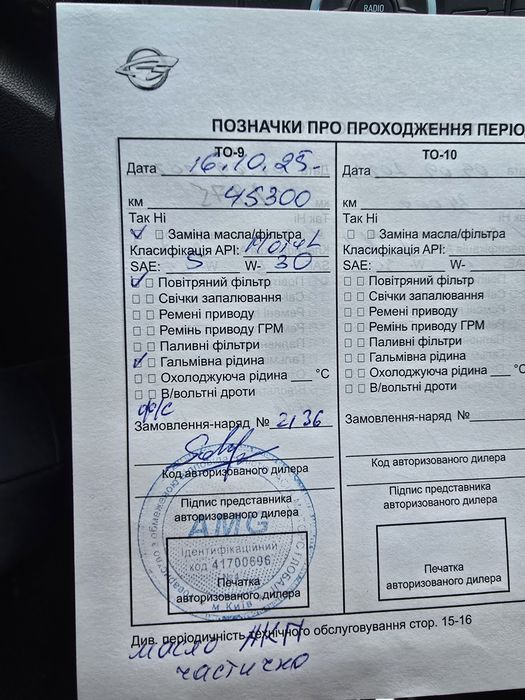 RADIO
ПОЗНАЧКИ ПРО ПРОХОДЖЕННЯ ПЕРІО
ТО-9
Дата 16.10.25
км 45300
Так Ні
Заміна масла/фільтра
Класифікація API: Motul
SAE: 5 W- 30
Повітряний фільтр
Свічки запалювання
Ремені приводу
Ремінь приводу ГРМ
Паливні фільтри
Гальмівна рідина
Охолоджуюча рідина ___ °C
В/вольтні дроти
ф/с
Замовлення-наряд № 2136
Код авторизованого дилера
Підпис представника
авторизованого дилера
AMG
Ідентифікаційний
код 41700696
Печатка
авторизованого дилера
м Київ
ТО-10
Дата
км
Так Ні
Заміна масла/фільтра
Класифікація API:
SAE: W-
Повітряний фільтр
Свічки запалювання
Ремені приводу
Ремінь приводу ГРМ
Паливні фільтри
Гальмівна рідина
Охолоджуюча рідина ___ °C
В/вольтні дроти
Замовлення-наряд №
Код авторизованого дилера
Підпис представника
авторизованого дилера
Печатка
авторизованого дилера
Див. періодичність технічного обслуговування стор. 15-16
масло АКПП
частично